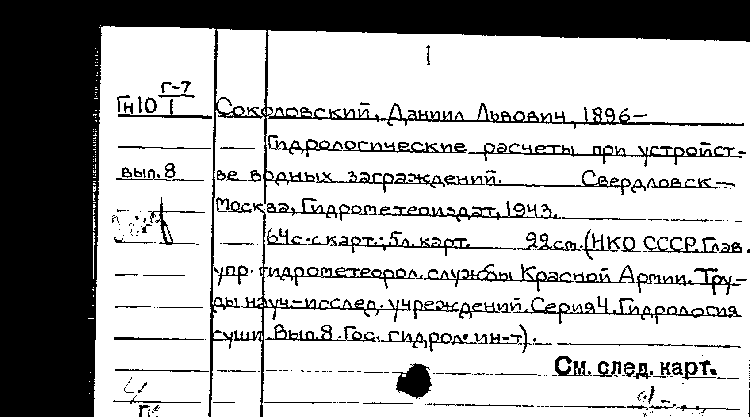 1
Гн10 Г-7/1 Соколовский, Даниил Львович, 1896–
Гидрологические расчеты при устройст-
вып.8 ве водных заграждений. Свердловск –
Москва, Гидрометеоиздат, 1943.
64с. с карт.; 5л. карт. 22см. (НКО СССР. Глав.
упр. гидрометеорол. службы Красной Армии. Тру-
ды науч-исслед. учреждений. Серия 4. Гидрология
суши. Вып. 8. Гос. гидрол. ин-т).
См. след. карт.